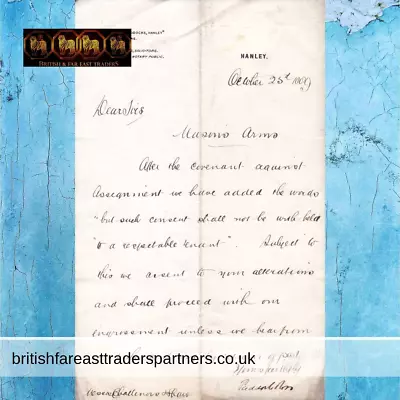 BRITISH & FAR EAST TRADERS
HANLEY.
October 25th 1909
Dear Sirs
Masons Arms
After the covenant against
assignment we have added the words
"but such consent shall not be withheld
"to a respectable tenant". Subject to
this we assent to your alterations
and shall proceed with our
engrossment unless we hear from
britishfareasttraderspartners.co.uk